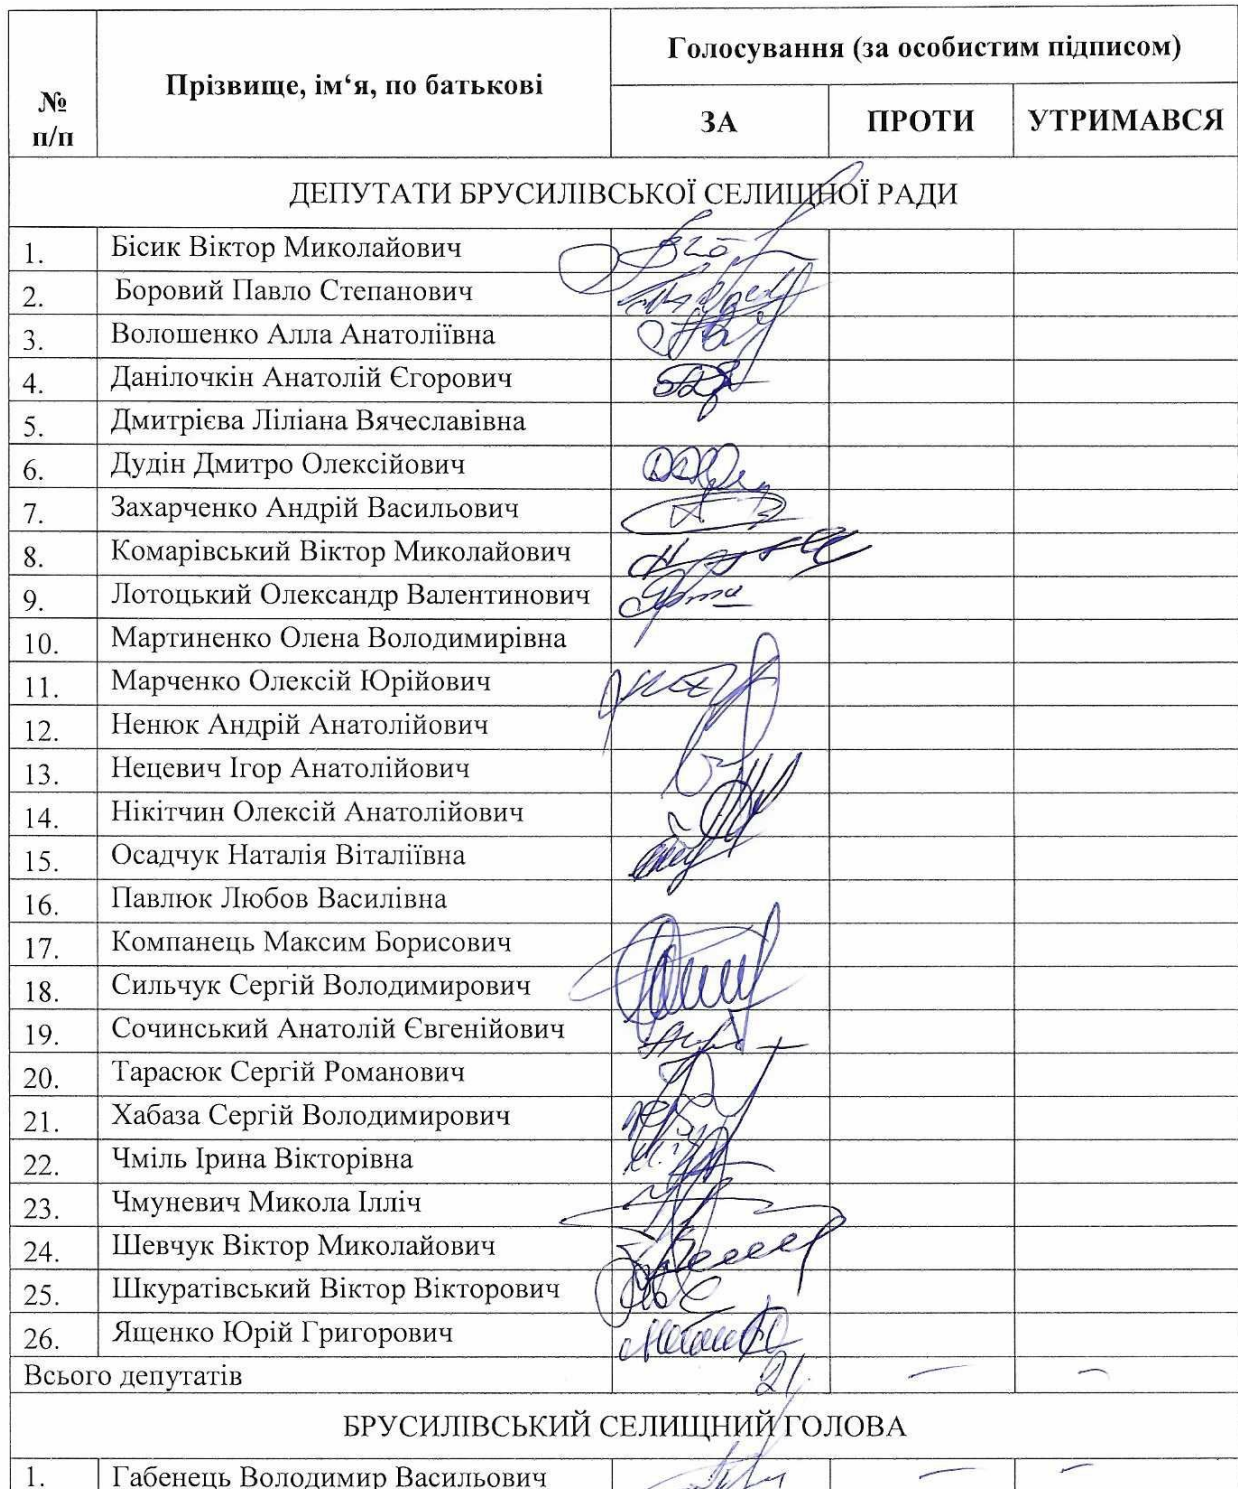 № п/п
Прізвище, ім‘я, по батькові
Голосування (за особистим підписом)
ЗА
ПРОТИ
УТРИМАВСЯ
ДЕПУТАТИ БРУСИЛІВСЬКОЇ СЕЛИЩНОЇ РАДИ
1. Бісик Віктор Миколайович
2. Боровий Павло Степанович
3. Волошенко Алла Анатоліївна
4. Данілочкін Анатолій Єгорович
5. Дмитрієва Ліліана Вячеславівна
6. Дудін Дмитро Олексійович
7. Захарченко Андрій Васильович
8. Комарівський Віктор Миколайович
9. Лотоцький Олександр Валентинович
10. Мартиненко Олена Володимирівна
11. Марченко Олексій Юрійович
12. Ненюк Андрій Анатолійович
13. Нецевич Ігор Анатолійович
14. Нікітчин Олексій Анатолійович
15. Осадчук Наталія Віталіївна
16. Павлюк Любов Василівна
17. Компанець Максим Борисович
18. Сильчук Сергій Володимирович
19. Сочинський Анатолій Євгенійович
20. Тарасюк Сергій Романович
21. Хабаза Сергій Володимирович
22. Чміль Ірина Вікторівна
23. Чмуневич Микола Ілліч
24. Шевчук Віктор Миколайович
25. Шкуратівський Віктор Вікторович
26. Ященко Юрій Григорович
Всього депутатів 21. — —
БРУСИЛІВСЬКИЙ СЕЛИЩНИЙ ГОЛОВА
1. Габенець Володимир Васильович — —